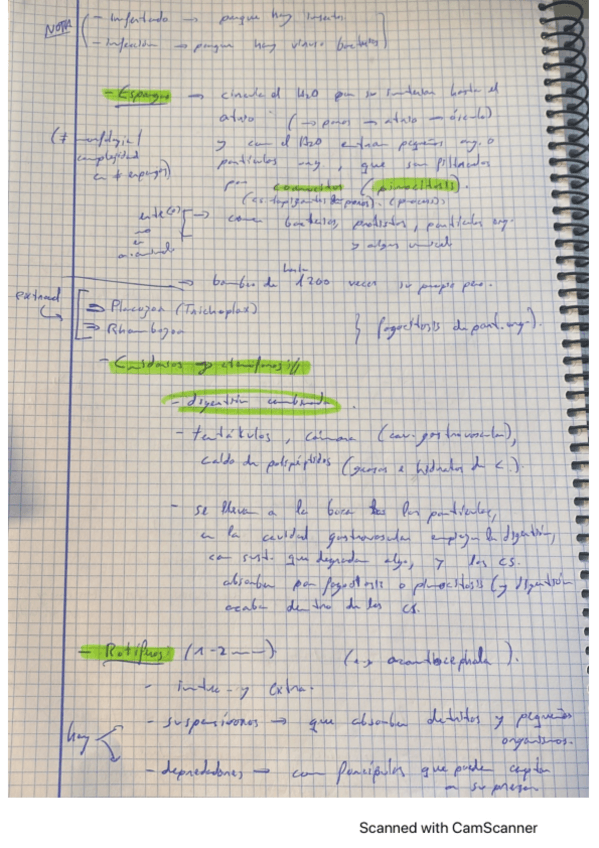 NOTA
- Infestado → porque hay insectos
- infección → porque hay virus o bacterias
- Esponjas → circula el H2O por su interior hasta el
atrio (→ poros → atrio → ósculo)
y con el H2O entran pequeños org. o
partículas org., que son filtradas
por coanocitos (pinocitosis).
(≠ morfología/
complejidad
en ≠ esponjas)
→ comen bacterias, protistas, partículas org.
y algas unicel
→ bombea de hasta 1200 veces su propio peso.
extracel
⇒ Placozoa (Trichoplax)
⇒ Rhombozoa
} fagocitosis de part. org.).
- Cnidarios y ctenóforos://
- digestión combinada.
- tentáculos, cámara (cav. gastrovascular),
caldo de polipéptidos (grasas e hidratos de C.).
- se llevan a la boca las partículas,
en la cavidad gastrovascular empieza la digestión,
con sust. que degradan algo, y las cs.
absorben por fagocitosis o pinocitosis (y digestión
acaba dentro de las cs.
- Rotíferos: (1-2 mm) (→ acantocephala).
- intra- y extra.
hay
- suspensívoros → que absorben detritos y pequeños
organismos.
- depredadores → con forcípulos que pueden captar
a su presa
Scanned with CamScanner